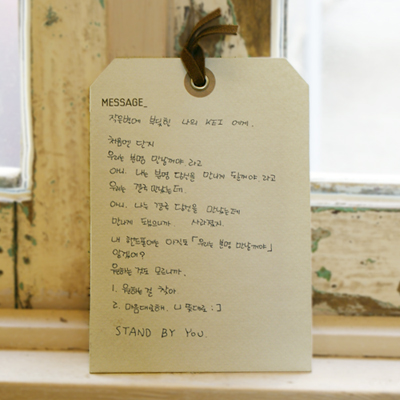 MESSAGE_
나의 KEI 에게.
처음엔 단지
우리는 분명 만날꺼야. 라고
아니. 나는 분명 당신을 만나게 될꺼야. 라고
우리는 결국 만났는데.
아니. 나는 결국 당신을 만났는데
만나게 되었으니 사라졌지.
내 핸드폰에는 아직도 「우리는 분명 만날꺼야」
알겠어?
원하는 것도 모르니까.
1. 원하는 걸 찾아
2. 마음대로해. 니 뜻대로 : ]
STAND BY YOU.